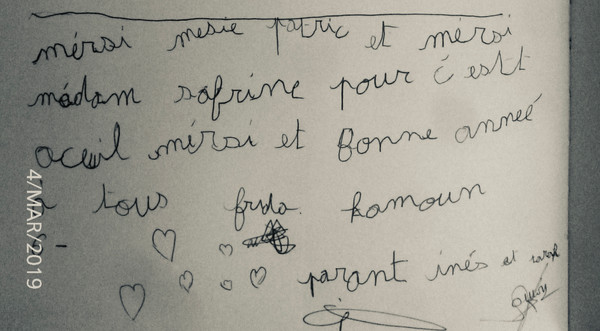 mérsi mesie patric et mérsi
mádam safrine pour c' estt
aceuil mérsi et Bonne anneé
a tous frida. hamoun
parant inés et
4/MAR/2019